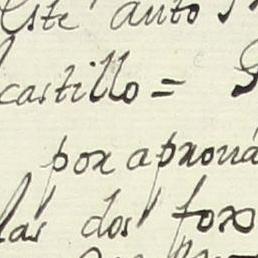 este auto
castillo =
por aprouá
las dos for